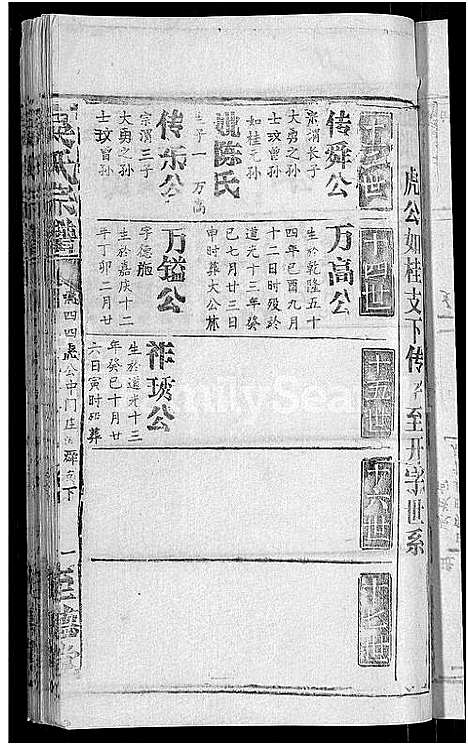 虎公如桂支下传 至形字世系
十三世
传舜公
宗渭长子
大勇之孙
士玟曾孙
如桂元孙
妣陈氏
生子一 万高
传乐公
宗渭三子
大勇之孙
士玟曾孙
十四世
万高公
生於乾隆五十
四年己酉九月
十二日时殁於
道光十三年癸
巳七月廿三日
申时葬大公林
万镒公
字德
生於嘉庆十二
年丁卯二月廿
十五世
祚琇公
生於道光十三
年癸巳十月廿
六日寅时 葬
十六世
十七世
吴氏宗谱
四四 虎公中门庄 下
一 至德堂
FamilySearch